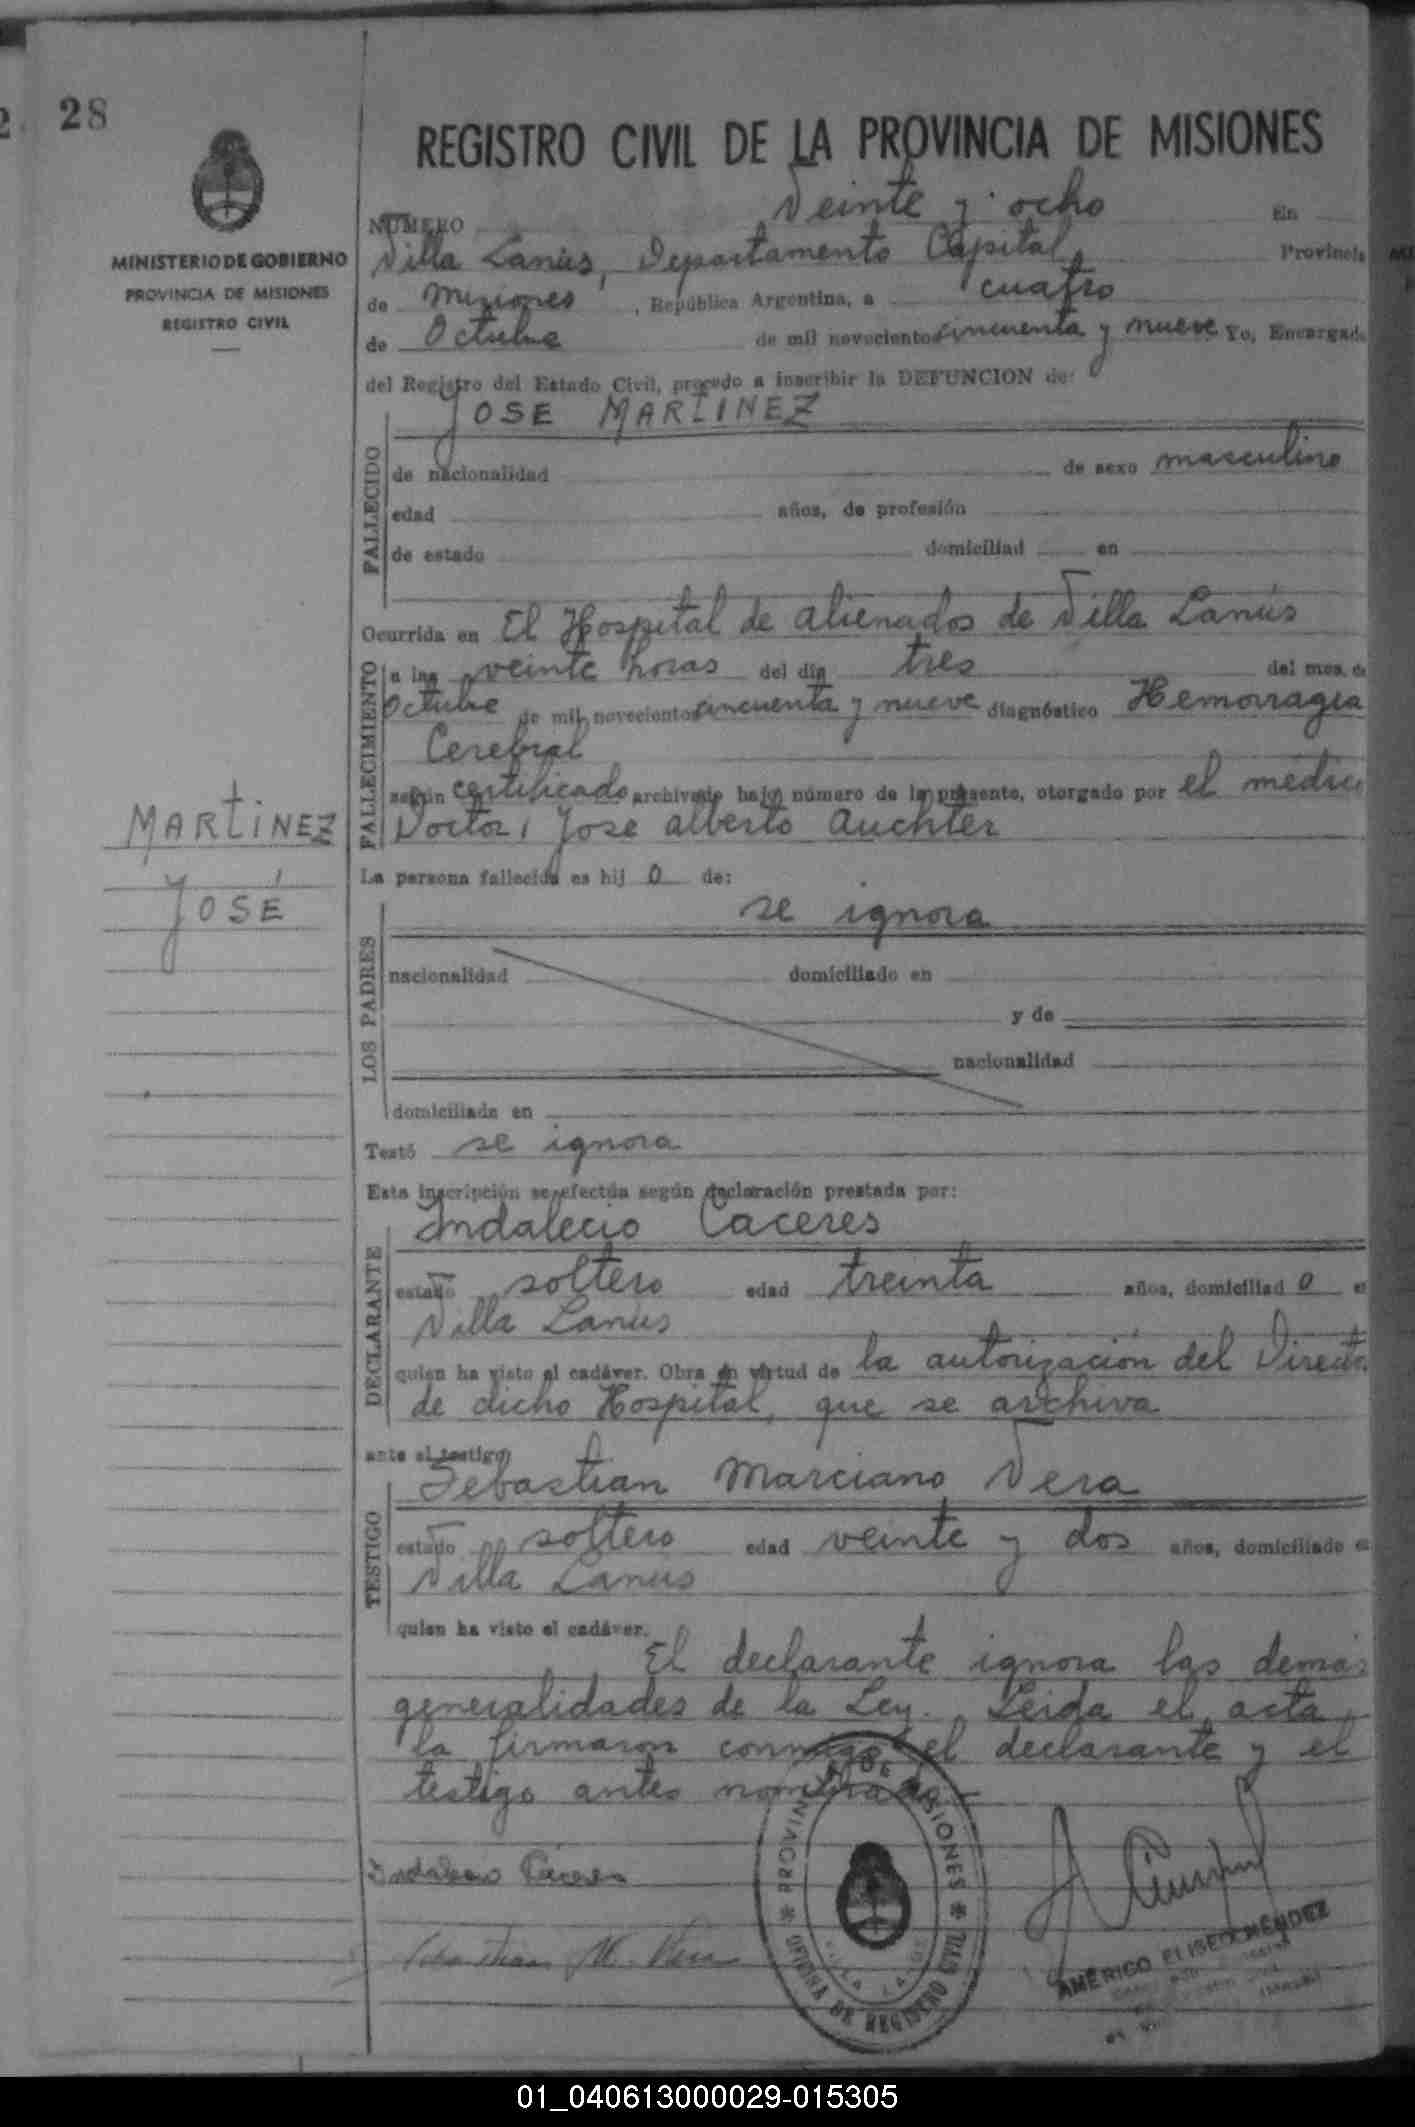 28
MINISTERIO DE GOBIERNO
PROVINCIA DE MISIONES
REGISTRO CIVIL
REGISTRO CIVIL DE LA PROVINCIA DE MISIONES
NUMERO Veinte y ocho En
Villa Lanús, Departamento Capital, Provincia
de Misiones, República Argentina, a cuatro
de Octubre de mil novecientos cincuenta y nueve Yo, Encargado
del Registro del Estado Civil, procedo a inscribir la DEFUNCION de:
JOSE MARTINEZ
FALLECIDO
de nacionalidad de sexo masculino
edad años, de profesión
de estado domiciliad en
Ocurrida en El Hospital de alienados de Villa Lanús
FALLECIMIENTO
a las veinte horas del día tres del mes de
Octubre de mil novecientos cincuenta y nueve diagnóstico Hemorragia
Cerebral
según certificado archivado bajo número de la presente, otorgado por el médico
Doctor, Jose alberto Auchter
MARTINEZ
JOSÉ
La persona fallecida es hij o de:
LOS PADRES
se ignora
nacionalidad domiciliado en
y de
nacionalidad
domiciliada en
Testó se ignora
Esta inscripción se efectúa según declaración prestada por:
DECLARANTE
Indalecio Caceres
estado soltero edad treinta años, domiciliad o e
Villa Lanús
quien ha visto el cadáver. Obra en virtud de la autorización del Director
de dicho Hospital, que se archiva
ante el testigo
TESTIGO
Sebastian Marciano Vera
estado soltero edad veinte y dos años, domiciliado e
Villa Lanus
quien ha visto el cadáver.
El declarante ignora las demás
generalidades de la Ley. Leida el acta,
la firmaron conmigo el declarante y el
testigo antes nombrado
Indalecio Cáceres
Sebastian M. Vera
PROVINCIA DE MISIONES
OFICINA DE REGISTRO CIVIL
VILLA LANUS
AMÉRICO ELISEO MÉNDEZ
01_040613000029-015305